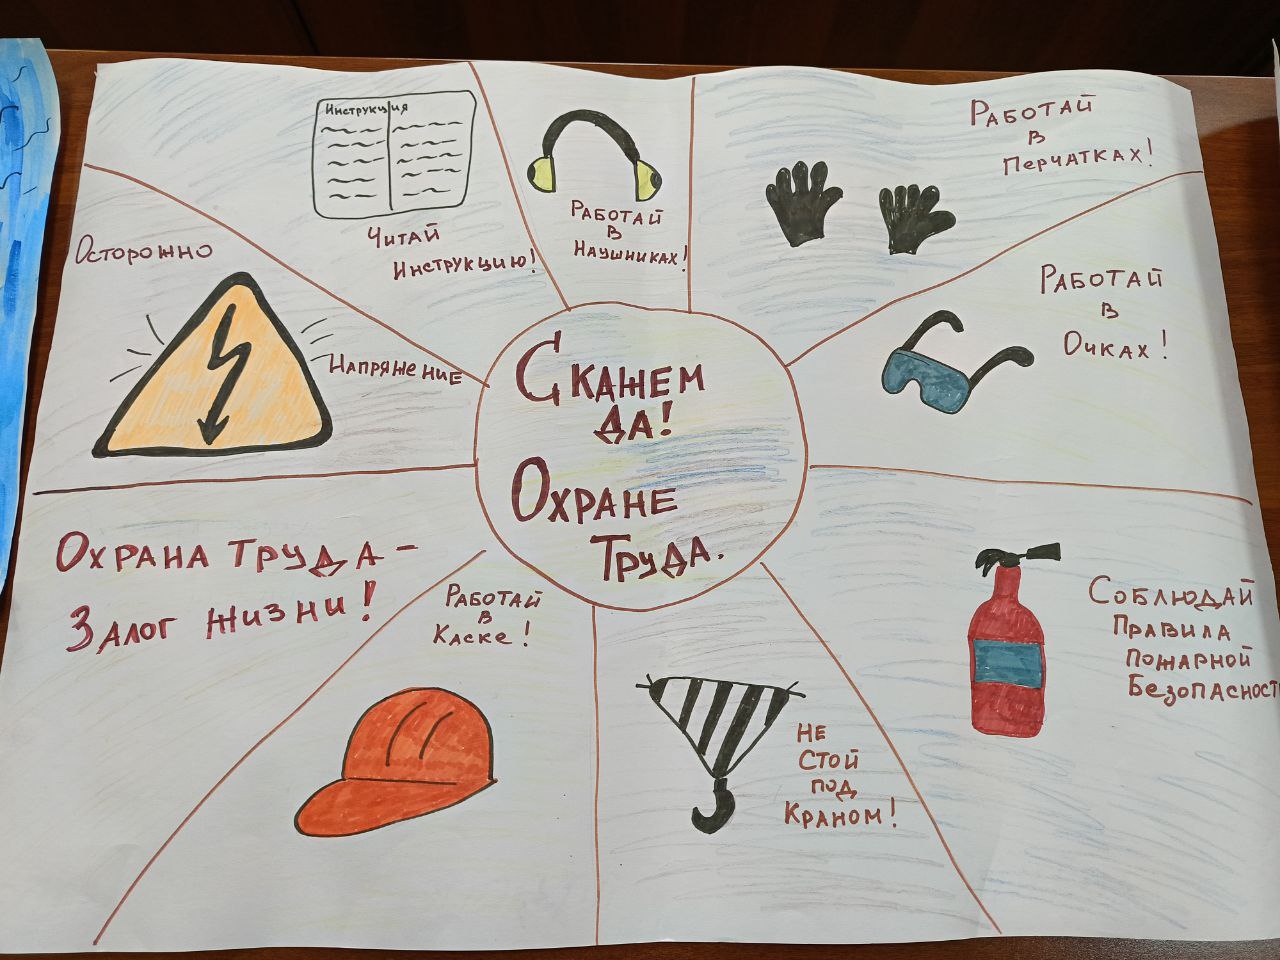 Скажем
да!
Охране
труда.
Инструкция
Читай
инструкцию!
Работай
в
наушниках!
Работай
в
перчатках!
Работай
в
очках!
Соблюдай
правила
пожарной
безопасност
Не
стой
под
краном!
Работай
в
каске!
Охрана труда -
залог жизни!
Осторожно
напряжение